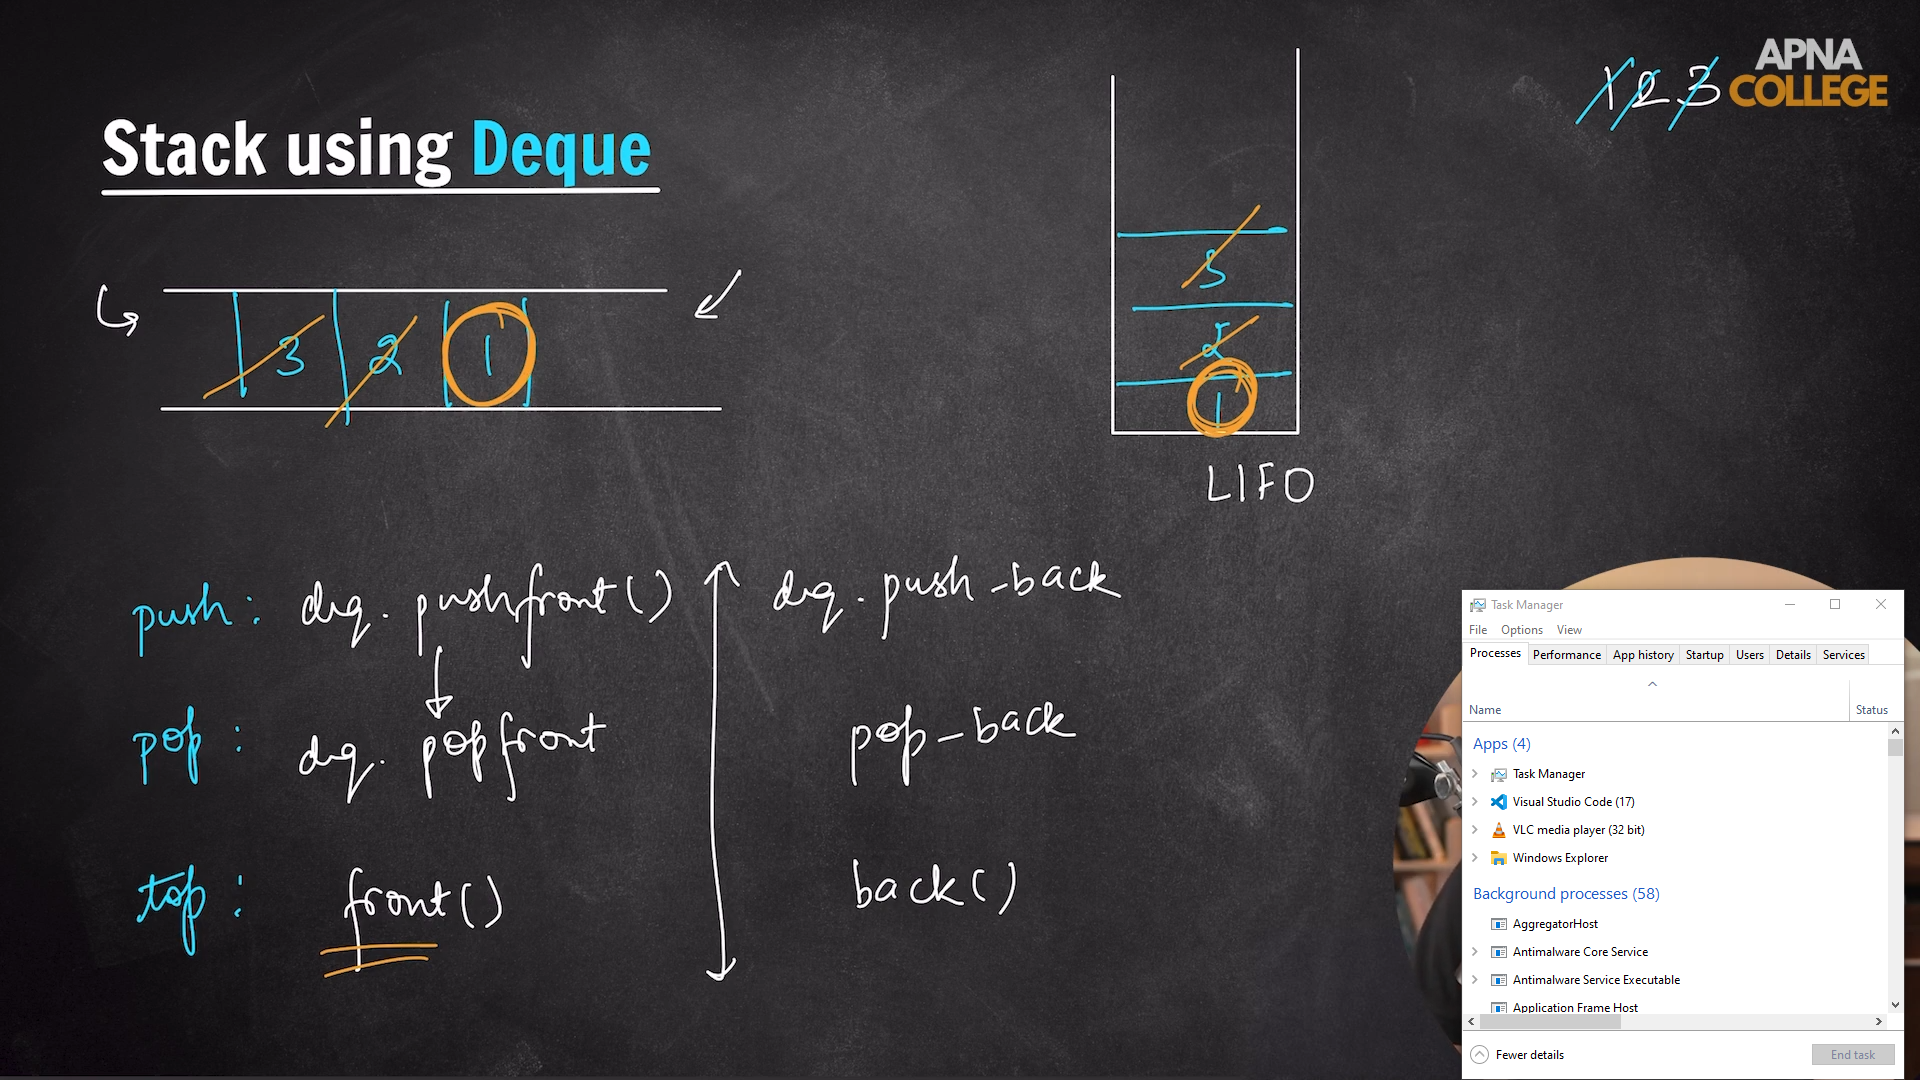 APNA
COLLEGE
1 2 3
Stack using Deque
3 2 1
3
2
1
LIFO
push : deq. pushfront() deq. push_back
pop : deq. popfront pop_back
top : front() back()
Task Manager
File Options View
Processes Performance App history Startup Users Details Services
Name Status
Apps (4)
Task Manager
Visual Studio Code (17)
VLC media player (32 bit)
Windows Explorer
Background processes (58)
AggregatorHost
Antimalware Core Service
Antimalware Service Executable
Application Frame Host
Fewer details End task